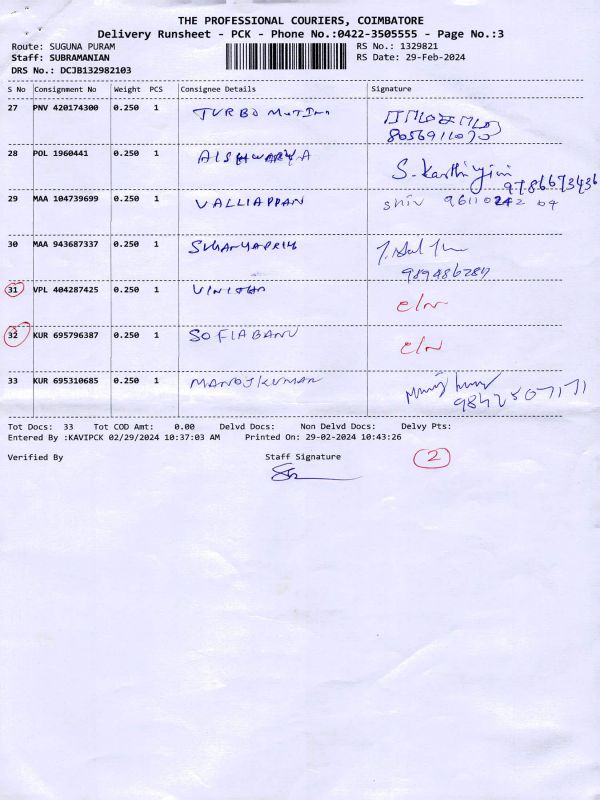 THE PROFESSIONAL COURIERS, COIMBATORE
Delivery Runsheet - PCK - Phone No.:0422-3505555 - Page No.:3
Route: SUGUNA PURAM RS No.: 1329821
Staff: SUBRAMANIAN RS Date: 29-Feb-2024
DRS No.: DCJB132982103
S No Consignment No Weight PCS Consignee Details Signature
27 PNV 420174300 0.250 1 TURBO
28 POL 1960441 0.250 1 AISHWARYA
S. Karthiyini
9786673436
29 MAA 104739699 0.250 1 VALLIAPPAN shiv 96110242 09
30 MAA 943687337 0.250 1
31 VPL 404287425 0.250 1 e/n
32 KUR 695796387 0.250 1 SOFIABANU e/n
33 KUR 695310685 0.250 1 MANOJKUMAR
Tot Docs: 33 Tot COD Amt: 0.00 Delvd Docs: Non Delvd Docs: Delvy Pts:
Entered By :KAVIPCK 02/29/2024 10:37:03 AM Printed On: 29-02-2024 10:43:26
Verified By Staff Signature 2